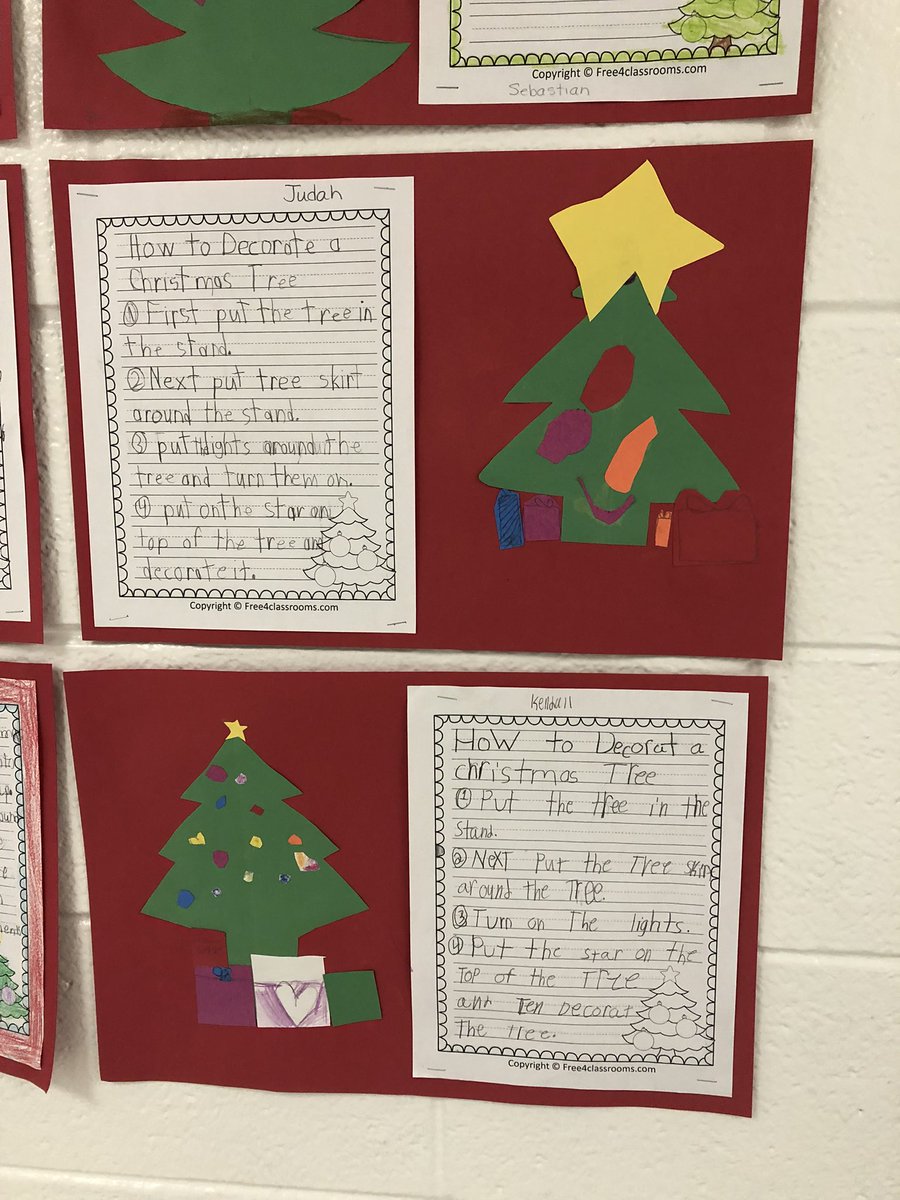 Copyright © Free4classrooms.com
Sebastian
Judah
How to Decorate a
Christmas Tree
① First put the tree in
the stand.
② Next put tree skirt
around the stand.
③ put the lights around the
tree and turn them on.
④ put on the star on
top of the tree and
decorate it.
Copyright © Free4classrooms.com
Kendall
How to Decorat a
christmas Tree
① Put the tree in the
stand.
② Next Put the Tree skirt
around the Tree.
③ Turn on The lights.
④ Put the star on the
Top of the Tree
ann Ten Decorat
The tree.
Copyright © Free4classrooms.com